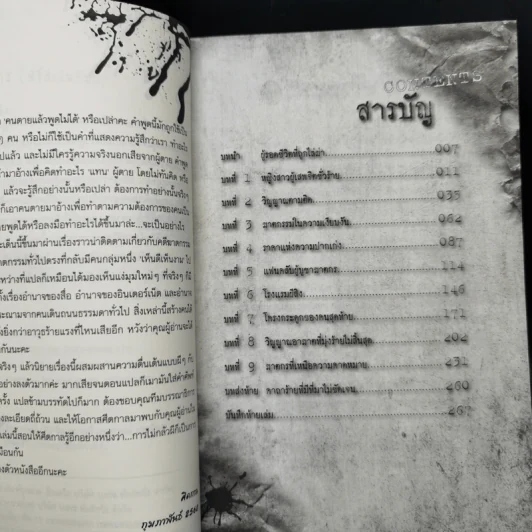 'คนตายแล้วพูดไม่ได้' หรือเปล่าคะ คำพูดนี้มักถูกใช้เป็น
คน หรือไม่ก็ใช้เป็นคำที่แสดงความรู้สึกว่าเรา
และไม่มีใครรู้ความจริงนอกเสียจากผู้ตาย คำพูด
มาอ้างเพื่อคิดทำอะไร 'แทน' ผู้ตาย โดยไม่ทันคิด
แล้วจะรู้สึกอย่างนั้นหรือเปล่า ต้องการทำอย่างนั้นจริงๆ
ก็เอาคนตายมาอ้างเพื่อทำตามความต้องการของคนเป็น
พูดได้หรือลงมือทำอะไรได้ขึ้นมาล่ะ...จะเป็นอย่างไร
ประเด็นนี้ขึ้นมาผ่านเรื่องราวน่าติดตามเกี่ยวกับคดีฆาตกรรม
กรรมทั่วไปตรงที่กลับมีคนกลุ่มหนึ่ง 'เห็นดีเห็นงาม'
ระหว่างที่แปลก็เหมือนได้มองเห็นแง่มุมใหม่ๆ ที่จริงๆ
ทั้งเรื่องอำนาจของสื่อ อำนาจของอินเตอร์เน็ต และอำนาจ
จากคนเดินถนนธรรมดาทั่วไป สิ่งเหล่านี้สร้างคนได้
ยิ่งกว่าอาวุธร้ายแรงที่ไหนเสียอีก หวังว่าคุณผู้อ่านจะได้
กันนะคะ
จริงๆ แล้วนิยายเรื่องนี้ผสมผสานความตื่นเต้นแบบผีๆ
อย่างลงตัวมากค่ะ มากเสียจนตอนแปลก็เมามันใส่คำศัพท์
ครั้ง แปลข้ามบรรทัดไปก็มาก ต้องขอบคุณทีมบรรณาธิการ
อย่างละเอียดถี่ถ้วน และให้โอกาสศิตกาลมาพบกับคุณผู้อ่าน
เล่มนี้สอนให้ศิตกาลรู้อีกอย่างหนึ่งว่า...การไม่กลัวผีก็เป็น
เหมือนกัน
ตัวหนังสืออีกนะคะ
กุมภาพันธ์
CONTENTS
สารบัญ
บทนำ ผู้รอดชีวิตที่ถูกไล่ล่า 007
บทที่ 1 หญิงสาวผู้เสพจิตชั่วร้าย 011
บทที่ 2 วิญญาณตามติด 035
บทที่ 3 ฆาตกรรมในความเงียบงัน 062
บทที่ 4 ราคาแห่งความปากเก่ง 087
บทที่ 5 แฟนคลับผู้บูชาฆาตกร 114
บทที่ 6 โรงแรมผีสิง 146
บทที่ 7 โครงกระดูกของคนสุดท้าย 171
บทที่ 8 วิญญาณอาฆาตที่มุ่งร้ายไม่สิ้นสุด 202
บทที่ 9 ฆาตกรที่เหนือความคาดหมาย 231
บทส่งท้าย คำถามร้ายที่มีที่มาไม่ชัดเจน 260
บันทึกท้ายเล่ม 267